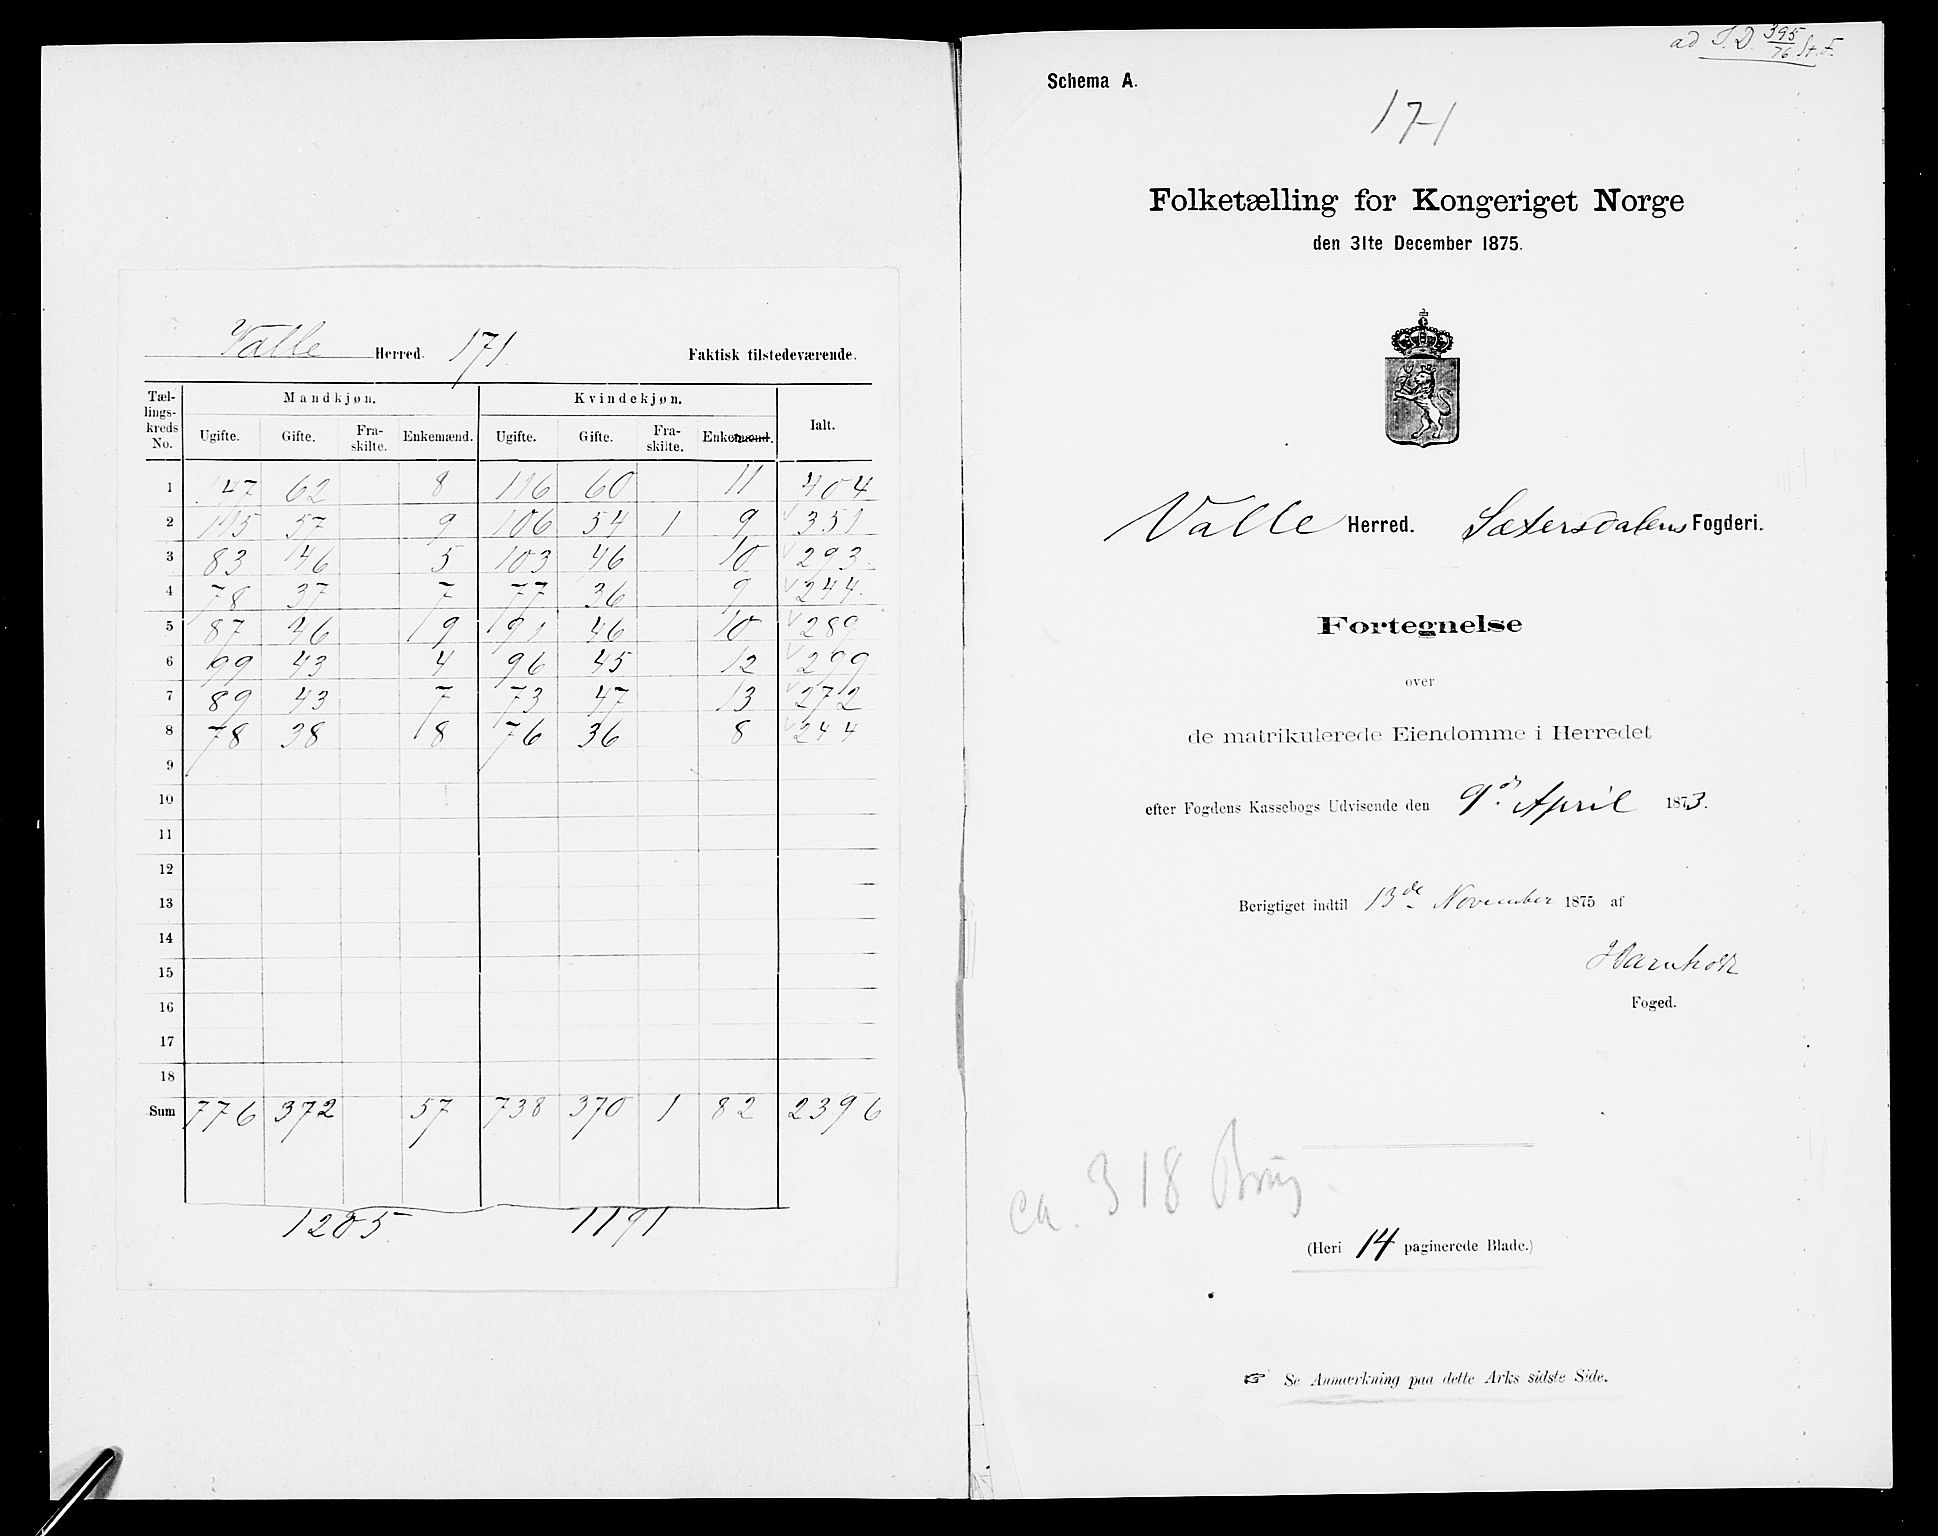 Valle Herred. 171 Faktisk tilstedeværende.
Tællingskreds No. Mandkjøn. Kvindekjøn. Ialt.
Ugifte. Gifte. Fraskilte. Enkemænd. Ugifte. Gifte. Fraskilte. Enkemænd.
1 147 62 8 116 60 11 404
2 115 57 9 106 54 1 9 351
3 83 46 5 103 46 10 293
4 78 37 7 77 36 9 244
5 87 46 9 91 46 10 289
6 99 43 4 96 45 12 299
7 89 43 7 73 47 13 272
8 78 38 8 76 36 8 244
9
10
11
12
13
14
15
16
17
18
Sum 776 372 57 738 370 1 82 2396
1205 1191
ad 395/76
Schema A.
171
Folketælling for Kongeriget Norge
den 31te December 1875.
Valle Herred. Sætersdalens Fogderi.
Fortegnelse
over
de matrikulerede Eiendomme i Herredet
efter Fogdens Kassebogs Udvisende den 9de April 1873.
Berigtiget indtil 13de November 1875 af
Foged.
ca. 318 Brug.
(Heri 14 paginerede Blade.)
☞ Se Anmærkning paa dette Arks sidste Side.